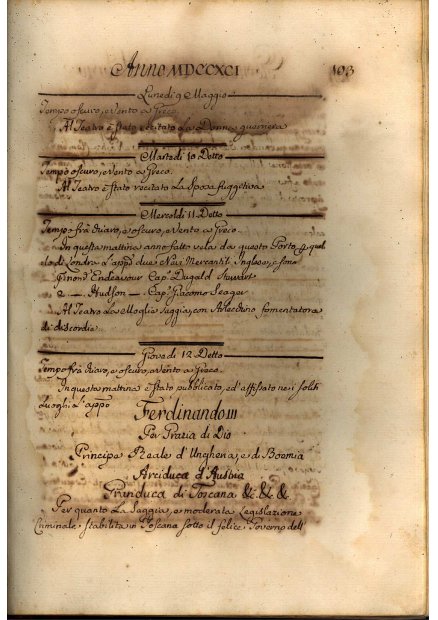 Anno MDCCXCI 103
Lunedi 9 Maggio
Tempo oscuro, e Vento a Greco.
Al Teatro è stato recitato La Donna guerriera
Martedi 10 Detto
Tempo oscuro, e Vento a Greco.
Al Teatro è stato recitato La Sposa fuggitiva
Mercoldi 11 Detto
Tempo frà chiaro, e oscuro, e Vento a Greco.
In questa mattina anno fatto vela da questo Porto p quel
lo di Londra L'appo due Navi Mercantili Inglesi, e sono
Endeavour Cap Dugald Stewart
e — Hudson — Cap Giacomo Seager
Al Teatro La Moglie Saggia, con Arlecchino fomentatora
di discordie
Giovedi 12 Detto
Tempo frà chiaro, e oscuro, e Vento a Greco.
In questa mattina è stato pubblicato, ed affissato nei soliti
Luoghi L'appo
Ferdinando III
Per Grazia di Dio
Principe Reale d'Ungheria, e di Boemia
Arciduca d'Austria
Granduca di Toscana &c &c &c
Per quanto La Saggia, e moderata Legislazione
Criminale stabilita in Toscana sotto il felice Governo dell'